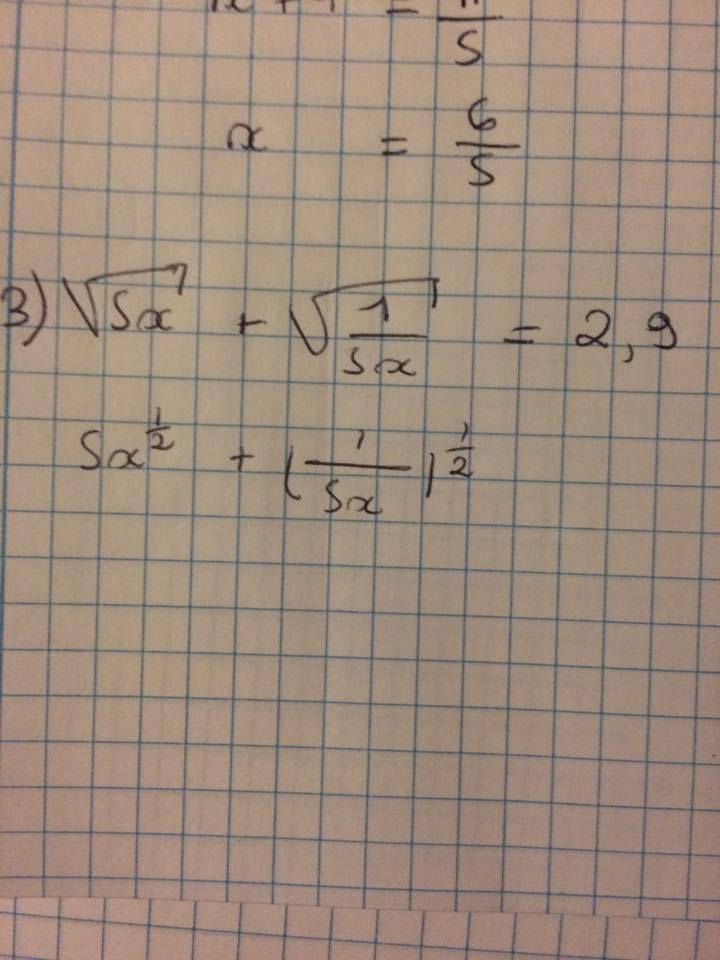 = /5
x = 6/5
3) √5x + √(1/5x) = 2,9
5x^(1/2) + (1/5x)^(1/2)